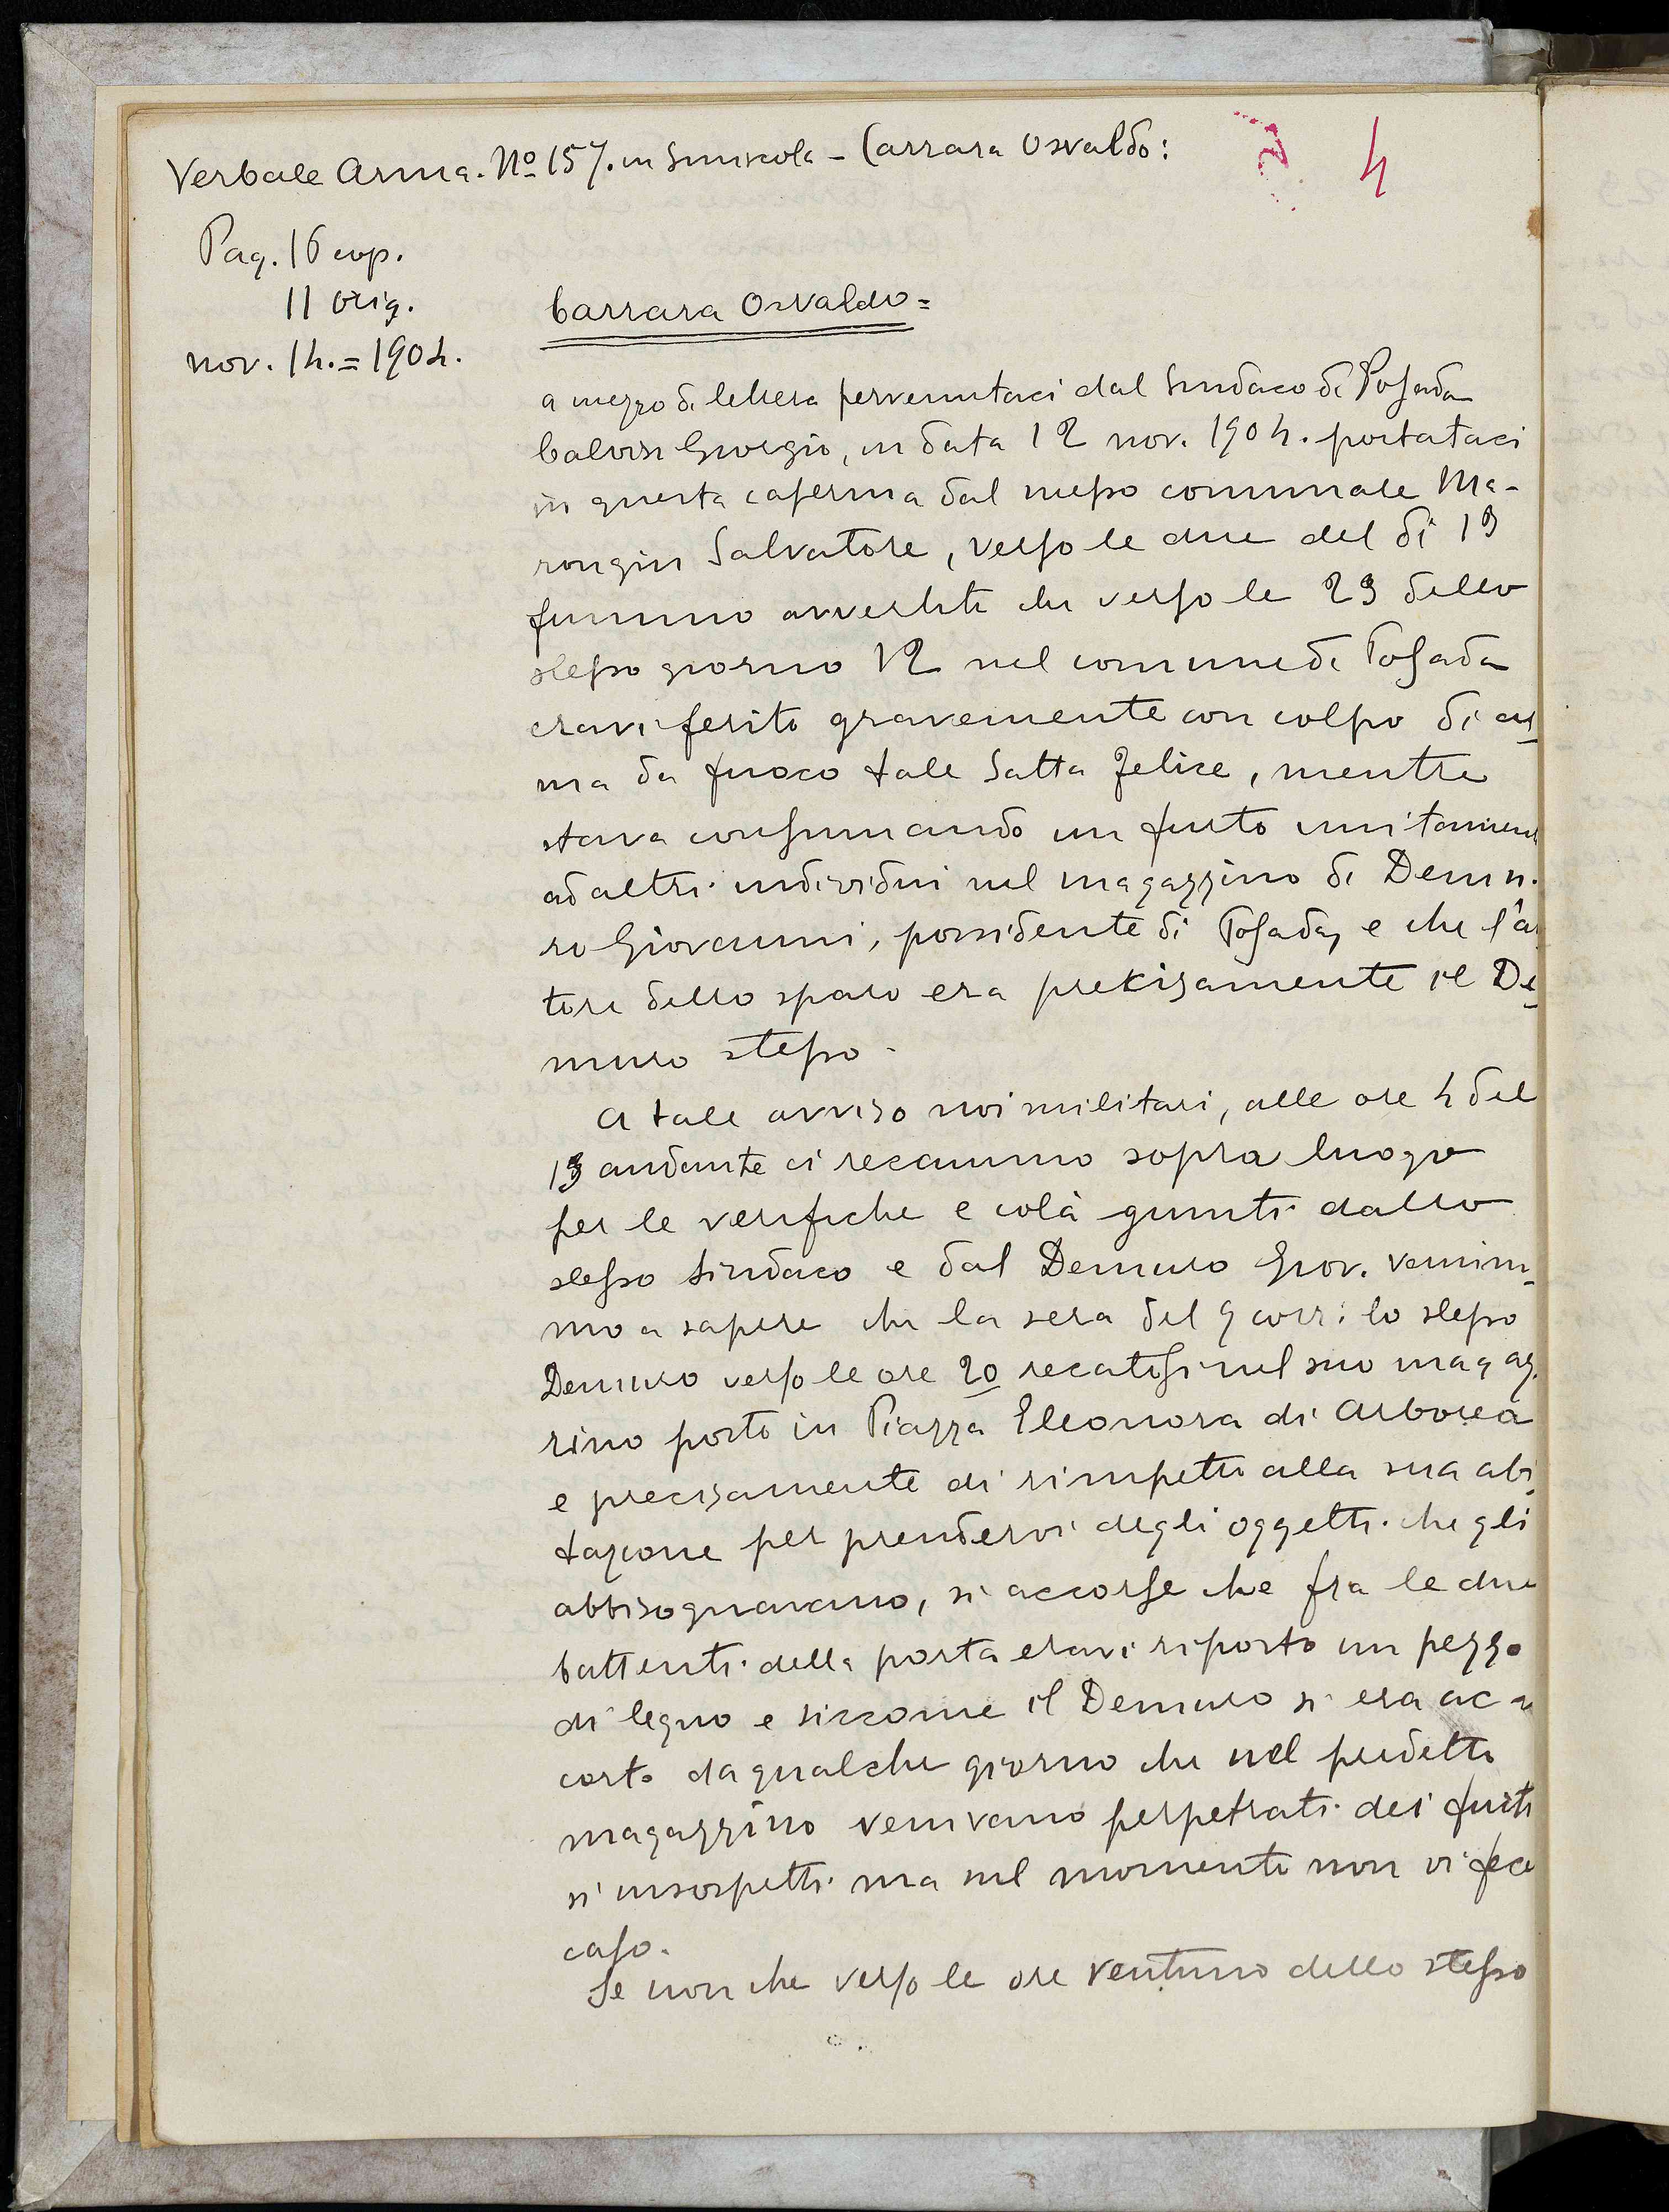 Verbale Arma. Nº 157. in Siniscola - Carrara Osvaldo:
4
Pag. 16 cop.
11 orig.
nov. 14. = 1904.
Carrara Osvaldo =
a mezzo di lettera pervenutaci dal Sindaco di Posada
Calvisi Giorgio, in data 12 nov. 1904. portataci
in questa caserma dal messo comunale Ma-
rongiu Salvatore, verso le due del dì 13
fummo avvertiti che verso le 23 dello
stesso giorno 12 nel comune di Posada
eravi ferito gravemente con colpo di ar
ma da fuoco tale Satta Felice, mentre
stava consumando un furto unitament
ad altri individui nel magazzino di Demu.
ro Giovanni, possidente di Posada, e che l'au
tore dello sparo era precisamente il De
muro stesso.
A tale avviso noi militari, alle ore 4 del
13 andante ci recammo sopra luogo
per le verifiche e colà giunti dallo
stesso Sindaco e dal Demuro Giov. venim-
mo a sapere che la sera del 9 corr: lo stesso
Demuro verso le ore 20 recatosi nel suo magaz.
zino posto in Piazza Eleonora di Arborea
e precisamente di rimpetto alla sua abi
tazione per prendervi degli oggetti che gli
abbisognavano, si accorse che fra le due
battenti della porta eravi riposto un pezzo
di legno e siccome il Demuro si era ac
corto da qualche giorno che nel predetto
magazzino venivano perpetrati dei furti
si insospettì ma sul momento non vi fece
caso.
Se non che verso le ore ventuno dello stesso